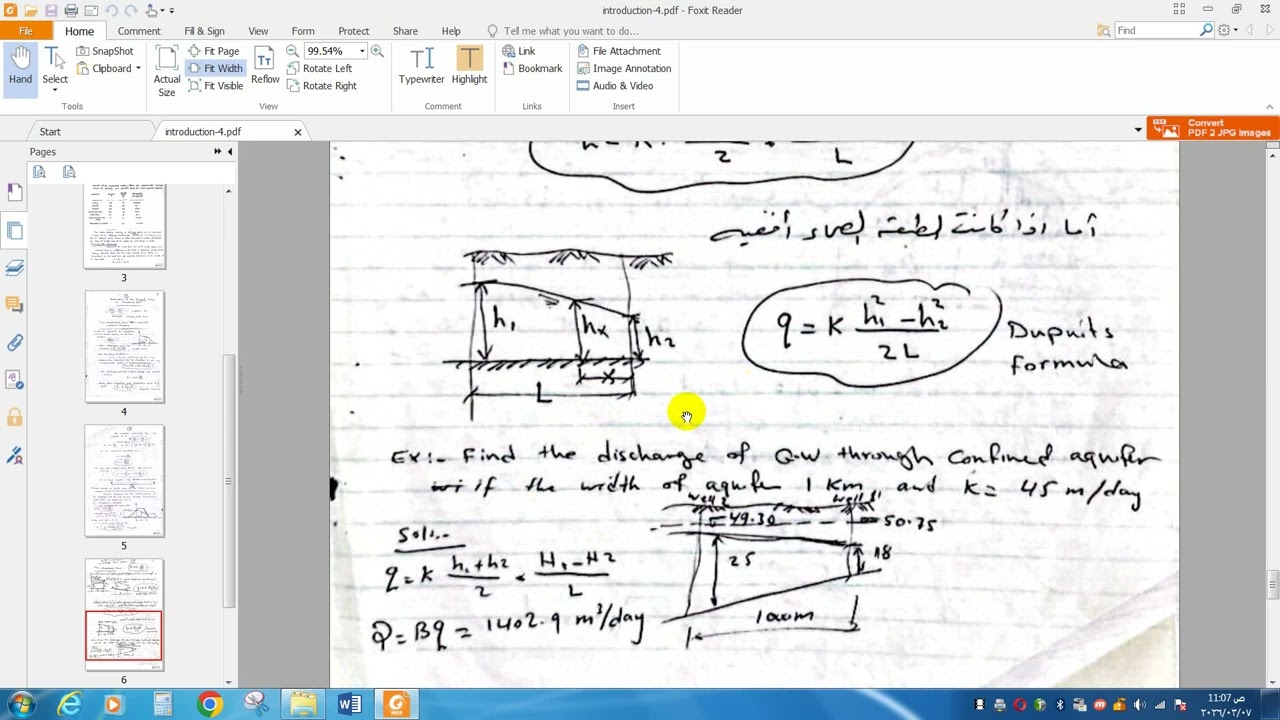 introduction-4.pdf - Foxit Reader
File Home Comment Fill & Sign View Form Protect Share Help Tell me what you want to do... Find
Hand
Select
SnapShot
Clipboard
Tools
Actual Size
Fit Page
Fit Width
Fit Visible
Reflow
99.54%
Rotate Left
Rotate Right
View
Typewriter
Highlight
Comment
Link
Bookmark
Links
File Attachment
Image Annotation
Audio & Video
Insert
Start
introduction-4.pdf
Convert
PDF 2 JPG Images
Pages
3
4
5
6
2
L
أما اذا كانت الطبقة
h₁
hx
h₂
x
L
q = K (h₁² - h₂²) / 2L
Dupuits
formula
Ex:- Find the discharge of G.W through Confined aquifer
if the width of aquifer 1 Km and K = 45 m/day
49.30
50.35
25
18
1000m
Soln.
q = K (h₁+h₂)/2 * (H₁-H₂)/L
Q = Bq = 1402.9 m³/day
11:07 ص
٢٠٢٦/٠٣/٠٧